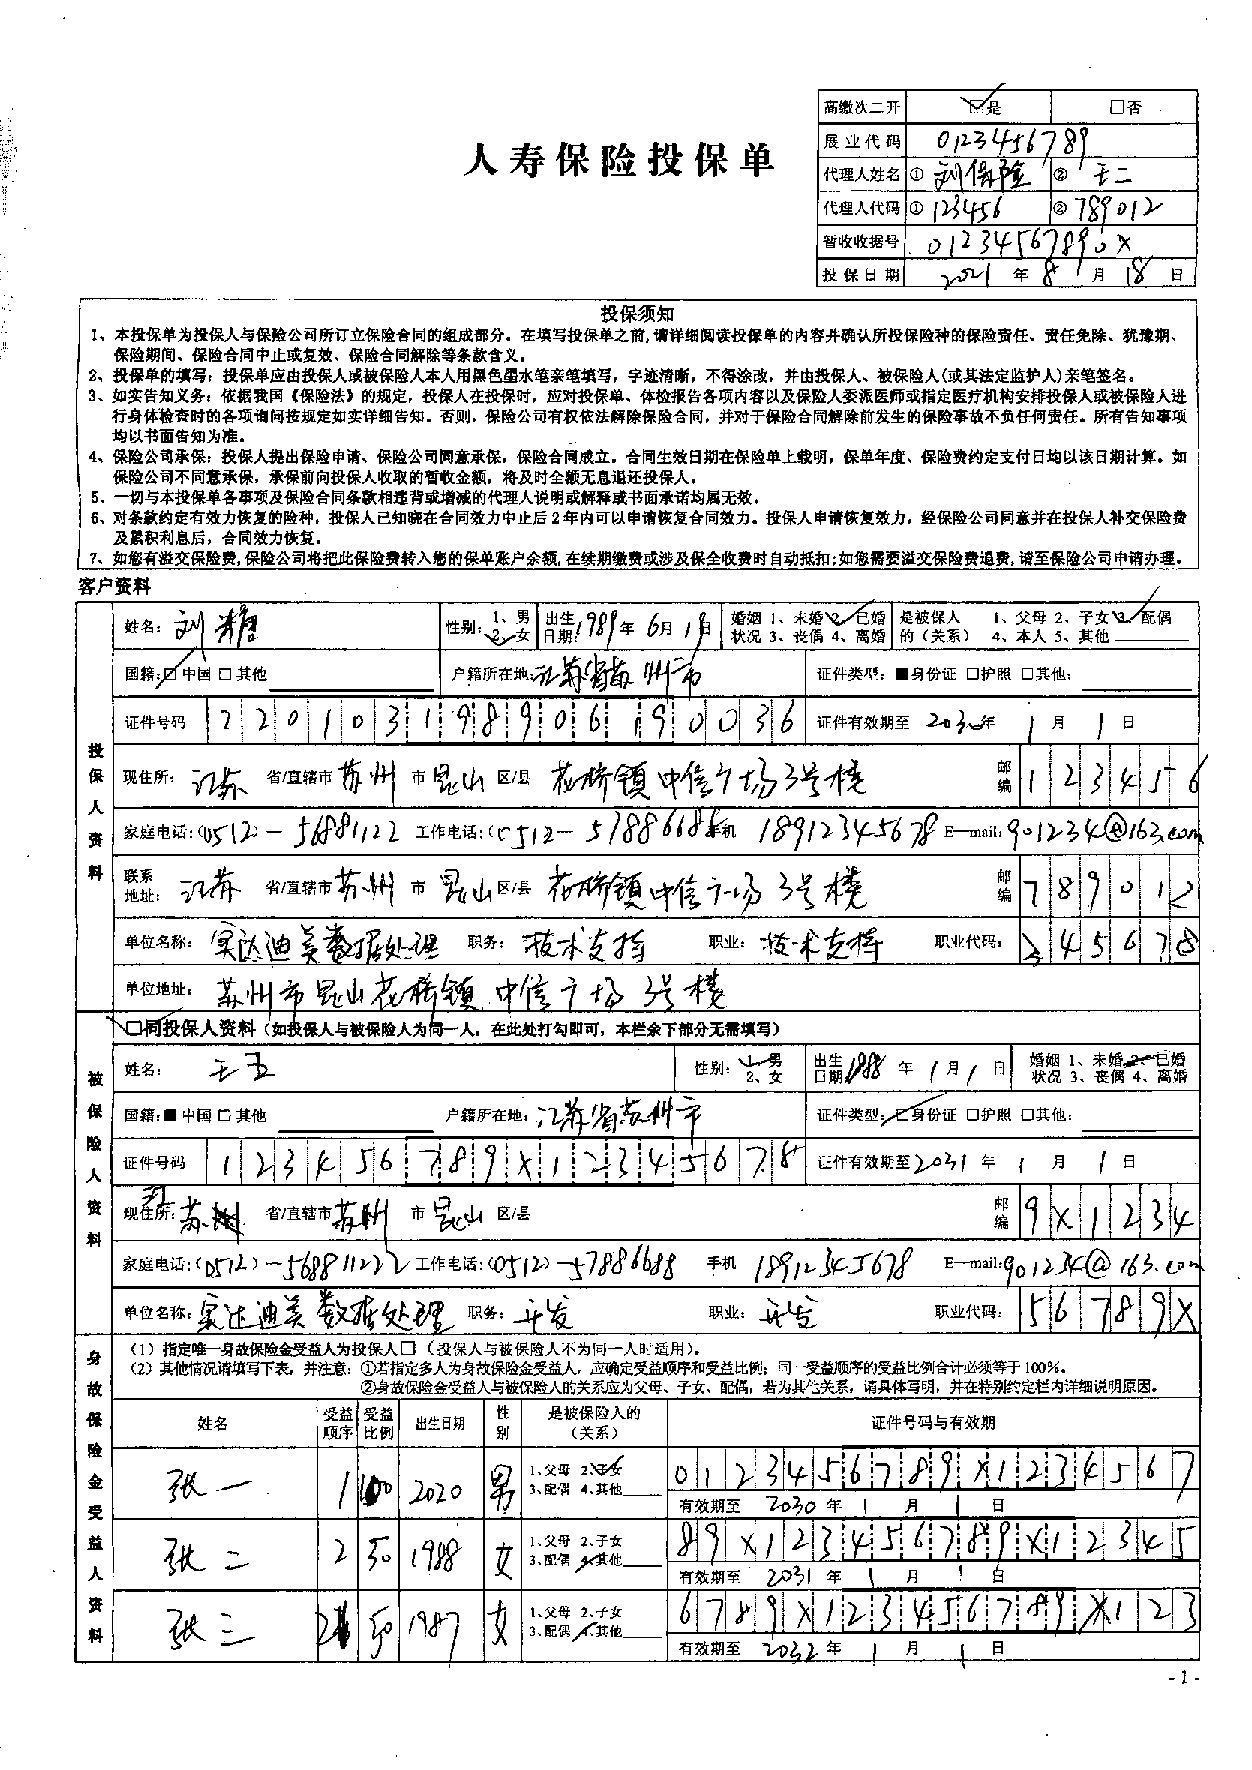 高缴次二开 ☑是 □否
人寿保险投保单
展业代码 0123456789
代理人姓名 ① 刘保险 ② 王二
代理人代码 ① 123456 ② 789012
暂收收据号 01234567890X
投保日期 2021 年 8 月 18 日
投保须知
1、本投保单为投保人与保险公司所订立保险合同的组成部分。在填写投保单之前,请详细阅读投保单的内容并确认所投保险种的保险责任、责任免除、犹豫期、
保险期间、保险合同中止或复效、保险合同解除等条款含义。
2、投保单的填写：投保单应由投保人或被保险人本人用黑色墨水笔亲笔填写，字迹清晰，不得涂改，并由投保人、被保险人(或其法定监护人)亲笔签名。
3、如实告知义务：依据我国《保险法》的规定，投保人在投保时，应对投保单、体检报告各项内容以及保险人委派医师或指定医疗机构安排投保人或被保险人进
行身体检查时的各项询问按规定如实详细告知。否则，保险公司有权依法解除保险合同，并对于保险合同解除前发生的保险事故不负任何责任。所有告知事项
均以书面告知为准。
4、保险公司承保：投保人提出保险申请、保险公司同意承保，保险合同成立。合同生效日期在保险单上载明，保单年度、保险费约定支付日均以该日期计算。如
保险公司不同意承保，承保前向投保人收取的暂收金额，将及时全额无息退还投保人。
5、一切与本投保单各事项及保险合同条款相违背或增减的代理人说明或解释或书面承诺均属无效。
6、对条款约定有效力恢复的险种，投保人已知晓在合同效力中止后2年内可以申请恢复合同效力。投保人申请恢复效力，经保险公司同意并在投保人补交保险费
及累积利息后，合同效力恢复。
7、如您有溢交保险费,保险公司将把此保险费转入您的保单账户余额,在续期缴费或涉及保全收费时自动抵扣;如您需要溢交保险费退费,请至保险公司申请办理。
客户资料
投保人资料
姓名： 刘 性别：1、男 2、女 出生日期：1989年 6月19日 婚姻状况 1、未婚 2、已婚 3、丧偶 4、离婚 是被保人的（关系） 1、父母 2、子女 3、配偶 4、本人 5、其他
国籍：☑ 中国 □ 其他 户籍所在地：江苏省苏州市 证件类型：■身份证 □护照 □其他：
证件号码 220103198906190036 证件有效期至 2030年 1 月 1 日
现住所： 江苏 省/直辖市 苏州 市 昆山 区/县 花桥镇中信广场3号楼 邮编 123456
家庭电话：(0512)-56881122 工作电话：(0512-57886686 手机 18912345678 E-mail：901234@163.com
联系地址： 江苏 省/直辖市 苏州 市 昆山 区/县 花桥镇中信广场 3号楼 邮编 789012
单位名称： 实达迪美数据处理 职务： 技术支持 职业： 技术支持 职业代码： 345678
单位地址： 苏州市昆山花桥镇 中信广场 3号楼
被保险人资料
□同投保人资料（如投保人与被保险人为同一人，在此处打勾即可，本栏余下部分无需填写）
姓名： 王五 性别：1、男 2、女 出生日期：1988 年 1月1 日 婚姻状况 1、未婚 2、已婚 3、丧偶 4、离婚
国籍：■ 中国 □ 其他 户籍所在地：江苏省苏州市 证件类型：☑身份证 □护照 □其他：
证件号码 123456789X12345678 证件有效期至2031 年 1 月 1 日
现住所： 江苏 省/直辖市 苏州 市 昆山 区/县 邮编 9X1234
家庭电话：(0512)-56881122 工作电话：(0512)-57886688 手机 18912345678 E-mail：901234@163.com
单位名称： 实达迪美数据处理 职务： 开发 职业： 开发 职业代码： 56789X
身故保险金受益人资料
（1）指定唯一身故保险金受益人为投保人□（投保人与被保险人不为同一人时适用）。
（2）其他情况请填写下表，并注意：①若指定多人为身故保险金受益人，应确定受益顺序和受益比例；同一受益顺序的受益比例合计必须等于100%。
②身故保险金受益人与被保险人的关系应为父母、子女、配偶，若为其他关系，请具体写明，并在特别约定栏内详细说明原因。
姓名 受益顺序 受益比例 出生日期 性别 是被保险人的（关系） 证件号码与有效期
张一 1 100 2020 男 1、父母 2、子女 3、配偶 4、其他 0123456789X1234567
有效期至 2030 年 1 月 1 日
张二 2 50 1988 女 1、父母 2、子女 3、配偶 4、其他 89X123456789X12345
有效期至 2031 年 1 月 1 日
张三 2 50 1987 女 1、父母 2、子女 3、配偶 4、其他 6789X123456789X123
有效期至 2032 年 1 月 1 日
- 1 -